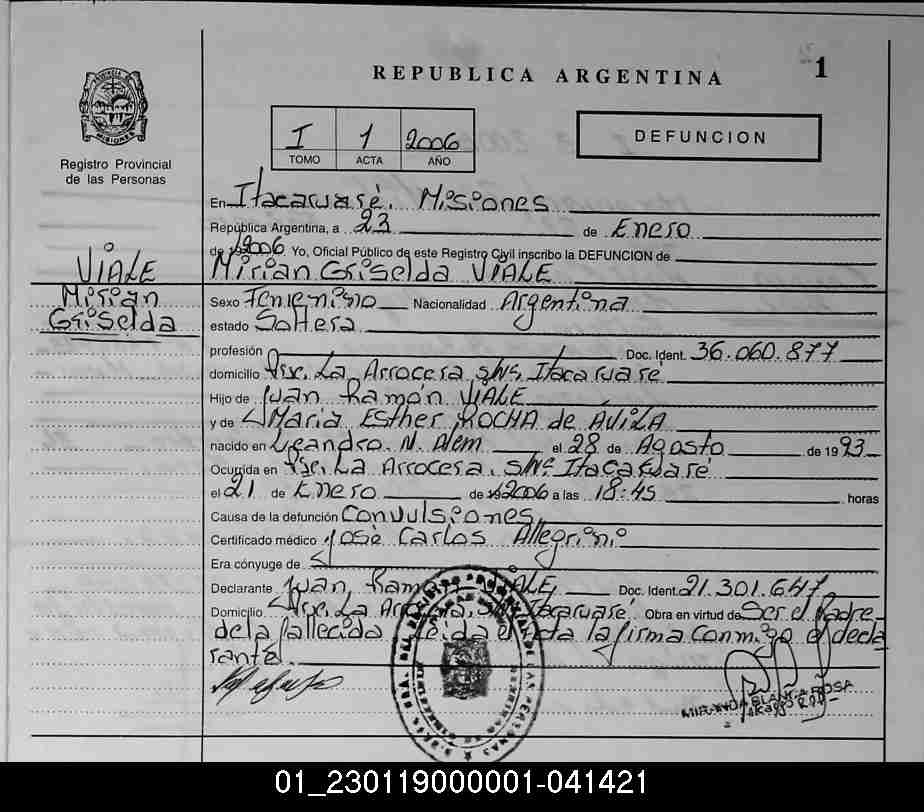 REPUBLICA ARGENTINA 1
I 1 2006
TOMO ACTA AÑO
DEFUNCION
Registro Provincial
de las Personas
En Itacaruaré. Misiones
República Argentina, a 23 de Enero
de 2006 Yo, Oficial Público de este Registro Civil inscribo la DEFUNCION de
VIALE
Mirian Griselda VIALE
Mirian
Griselda
Sexo Femenino Nacionalidad Argentina
estado Soltera
profesión Doc. Ident. 36.060.877
domicilio La Arrocera s/Nº. Itacaruaré
Hijo de Juan Ramón VIALE
y de María Esther ROCHA de AVILA
nacido en Leandro. N. Alem el 28 de Agosto de 1993
Ocurrida en La Arrocera. s/Nº Itacaruaré
el 21 de Enero de 192006 a las 18:45 horas
Causa de la defunción Convulsiones
Certificado médico José Carlos Allegrini
Era cónyuge de
Declarante Juan Ramón VIALE Doc. Ident. 21.301.647
Domicilio La Arrocera, s/Nº Itacaruaré Obra en virtud de Ser el Padre
de la fallecida Leida el acta la firma conmigo el decla
rante
MIRANDA BLANCA ROSA
01_230119000001-041421